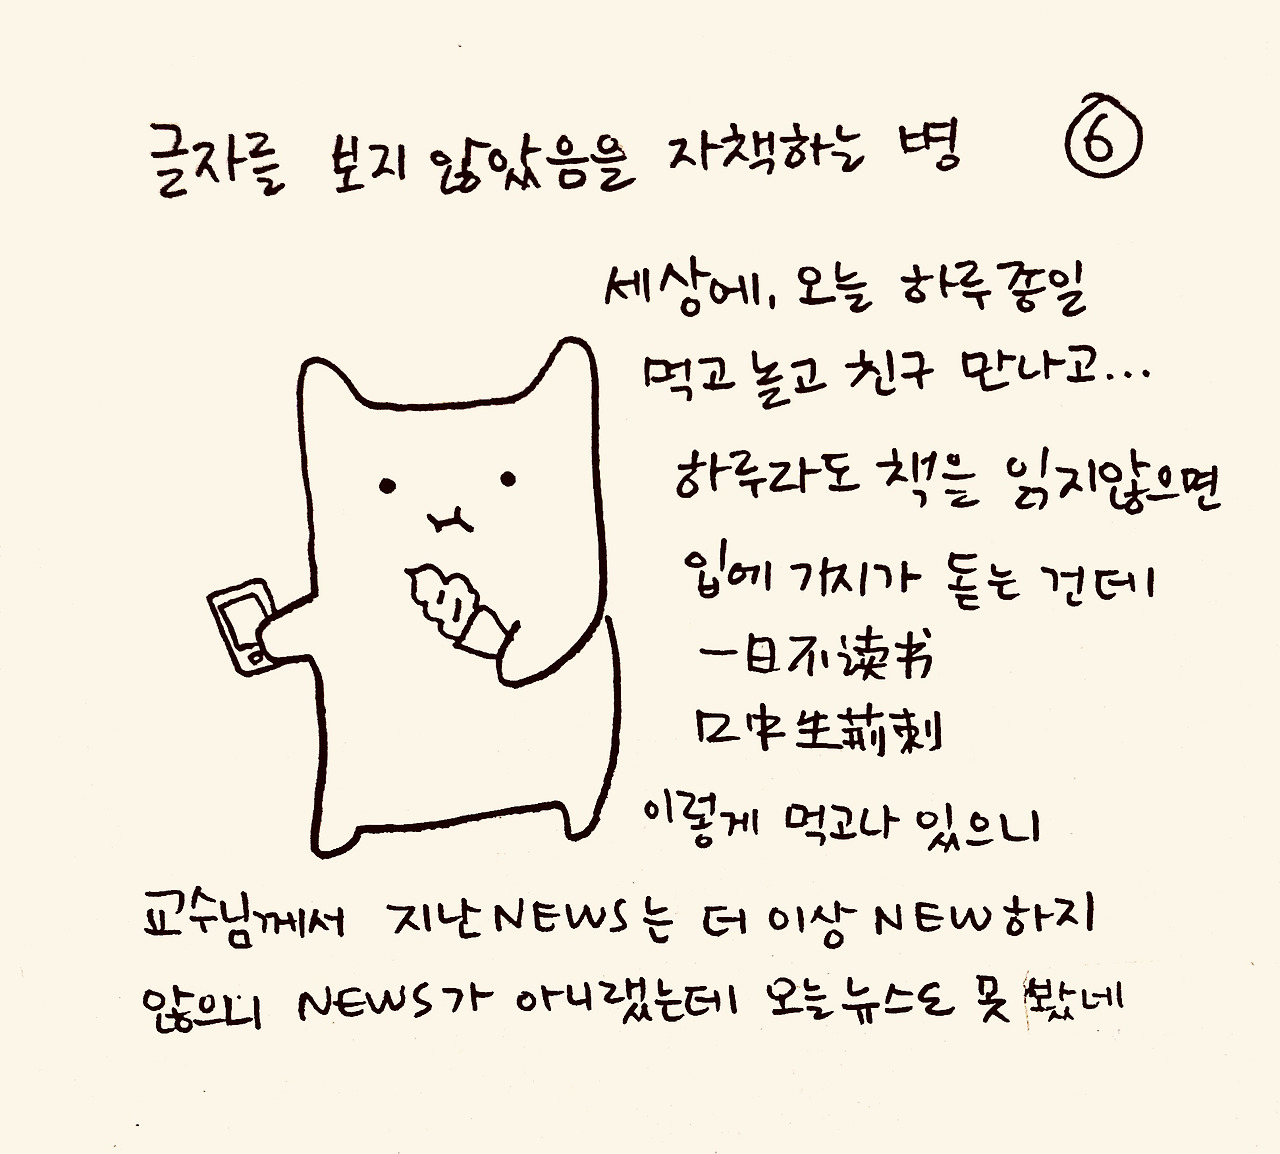 글자를 보지 않았음을 자책하는 병 ⑥
세상에, 오늘 하루종일
먹고 놀고 친구 만나고...
하루라도 책을 읽지않으면
입에 가시가 돋는 건데
一日不读书
口中生荊刺
이렇게 먹고나 있으니
교수님께서 지난NEWS는 더 이상 NEW하지
않으니 NEWS가 아니랬는데 오늘뉴스도 못 봤네